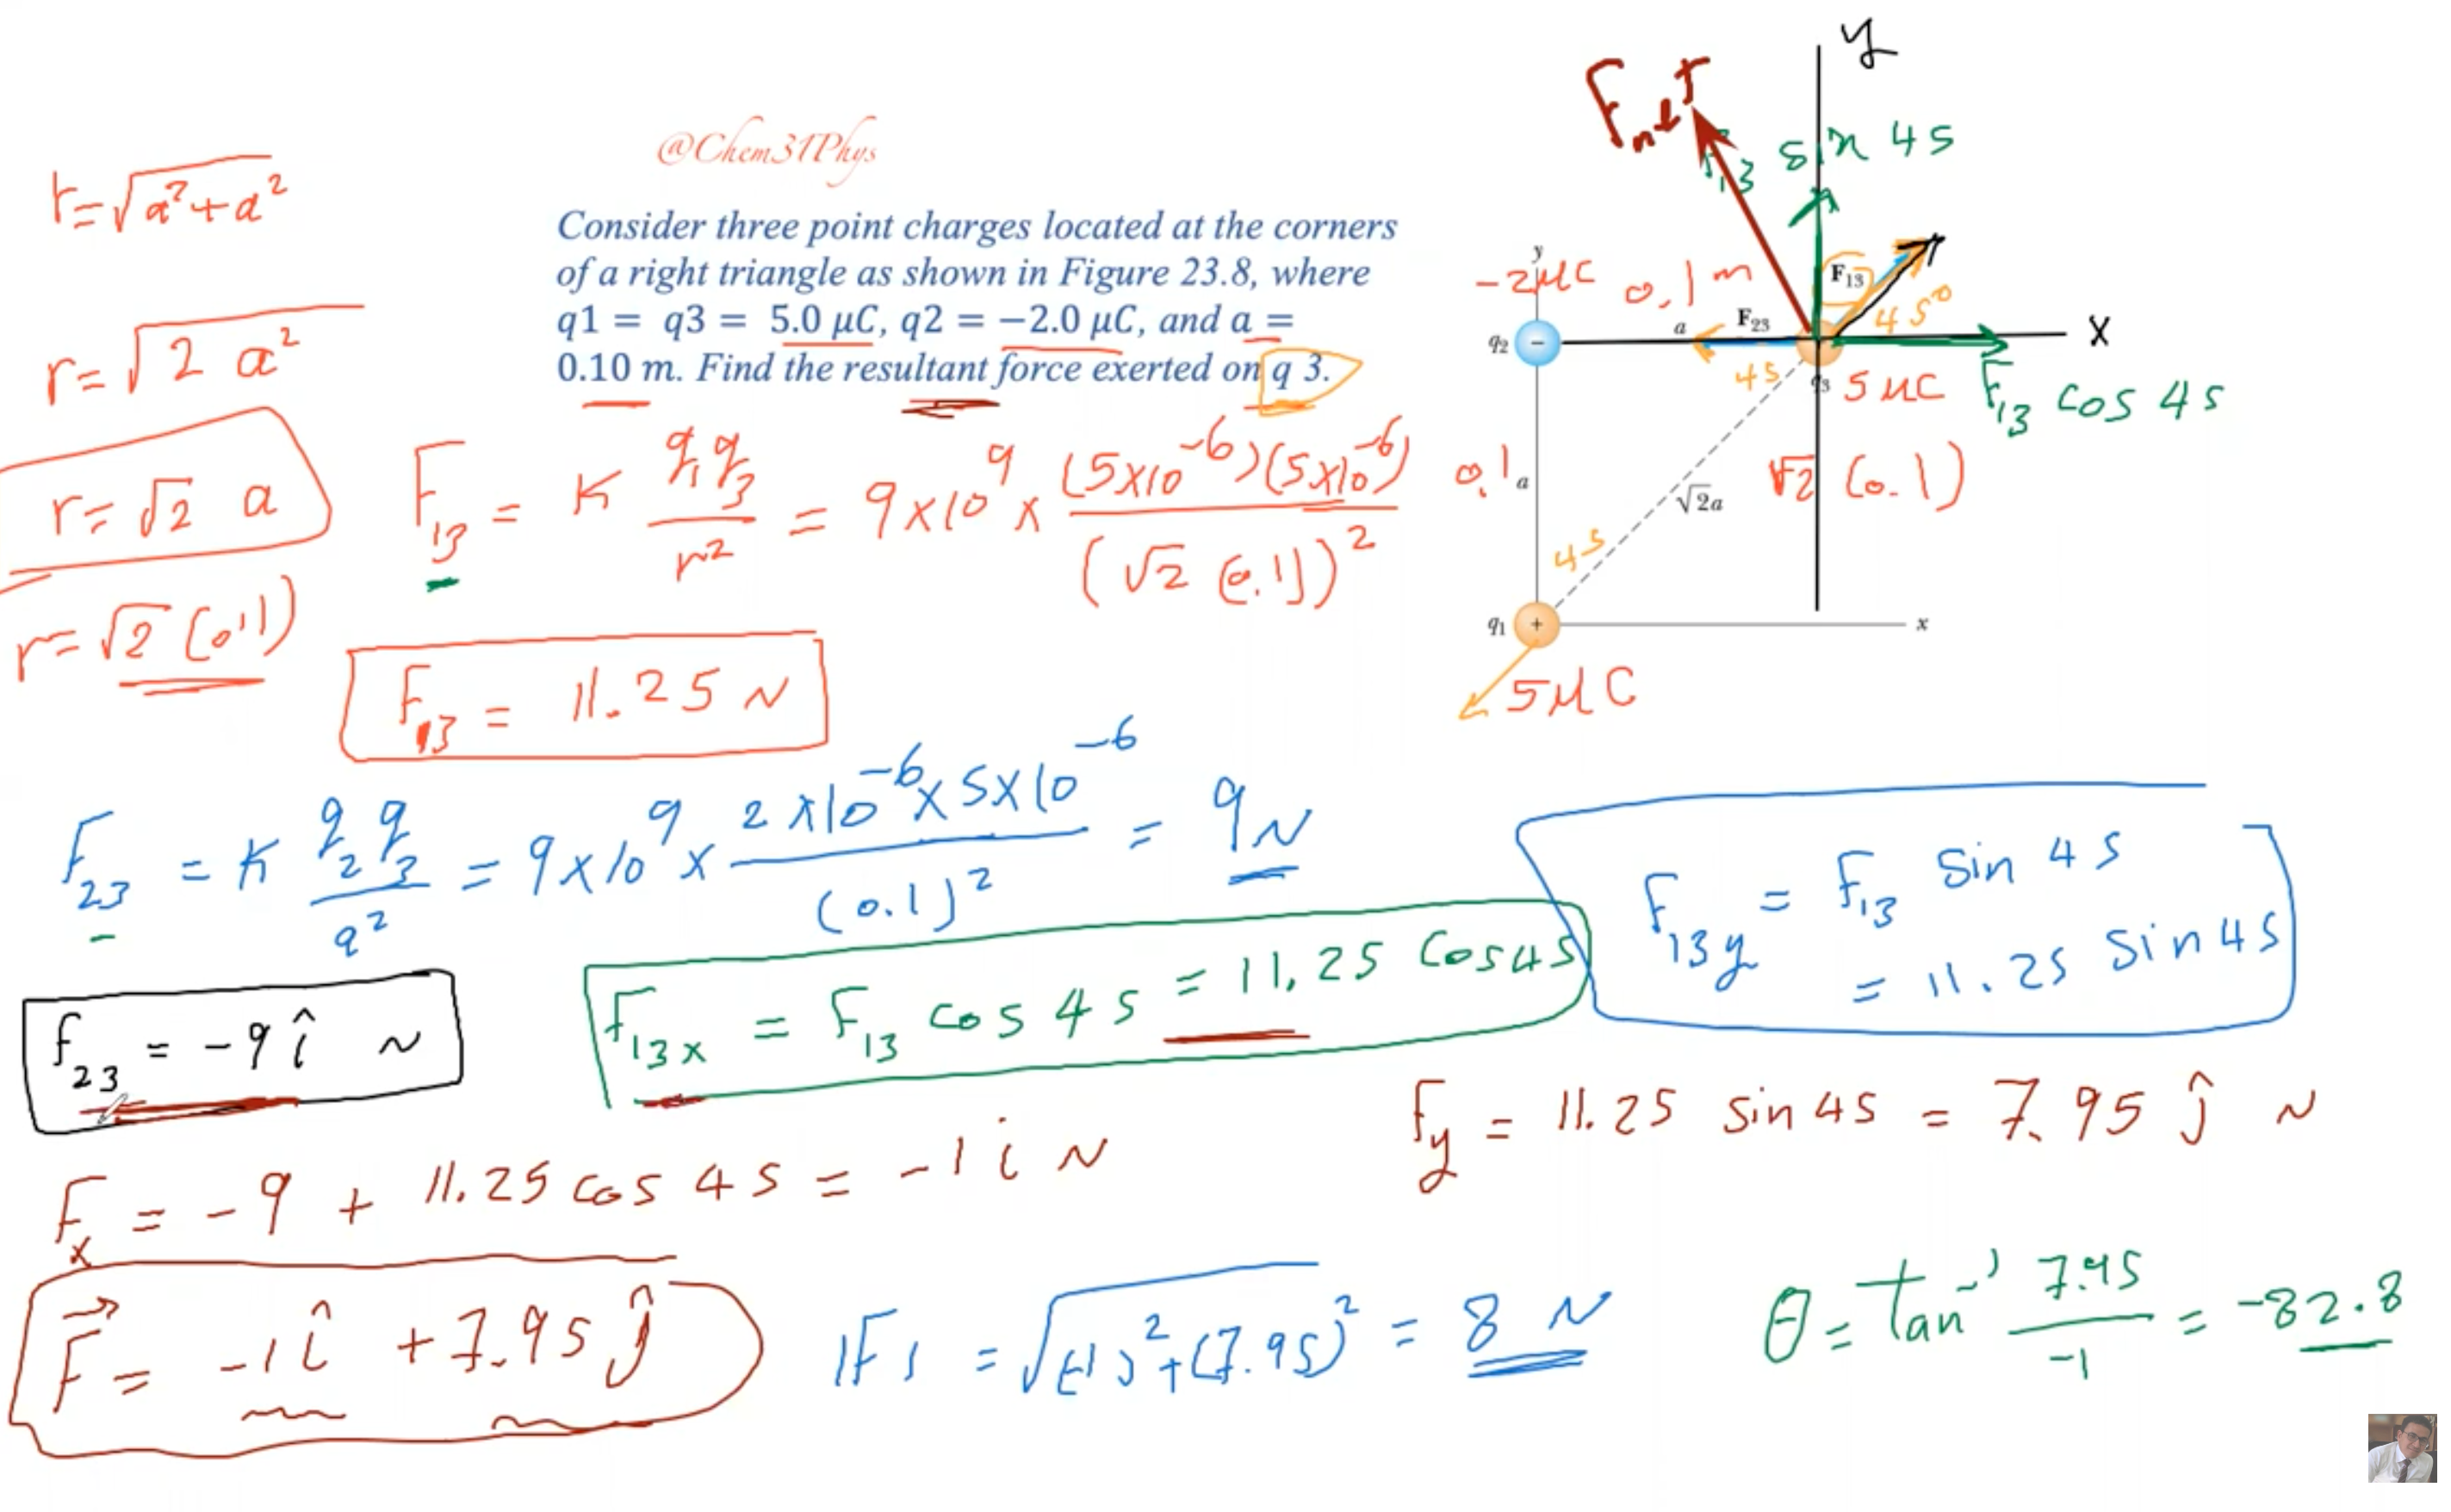 @Chem31Phys
Consider three point charges located at the corners
of a right triangle as shown in Figure 23.8, where
q1 = q3 = 5.0 μC, q2 = −2.0 μC, and a =
0.10 m. Find the resultant force exerted on q 3.
r=√a²+a²
r=√2 a²
r=√2 a
r=√2 (0.1)
F₁₃ = K q₁q₃/r² = 9×10⁹ × (5×10⁻⁶)(5×10⁻⁶)/(√2 (0.1))²
F₁₃ = 11.25 N
F₂₃ = K q₂q₃/a² = 9×10⁹ × 2×10⁻⁶×5×10⁻⁶/(0.1)² = 9N
F₂₃ = -9 î N
F₁₃ₓ = F₁₃ cos 45 = 11.25 cos45
F₁₃y = F₁₃ sin 45
= 11.25 sin45
Fₓ = -9 + 11.25 cos 45 = -1 i N
Fy = 11.25 sin45 = 7.95 ĵ N
F⃗ = -1 î + 7.95 ĵ
|F| = √(-1)²+(7.95)² = 8 N
θ = tan⁻¹ 7.95/-1 = -82.8
y
Fnet
F₁₃ sin 45
y
-2μC
0.1 m
F₁₃
45°
a
F₂₃
x
q₂
−
45
q₃
5 μC
F₁₃ cos 45
0.1
a
√2a
√2 (0.1)
45
q₁
+
x
5μC